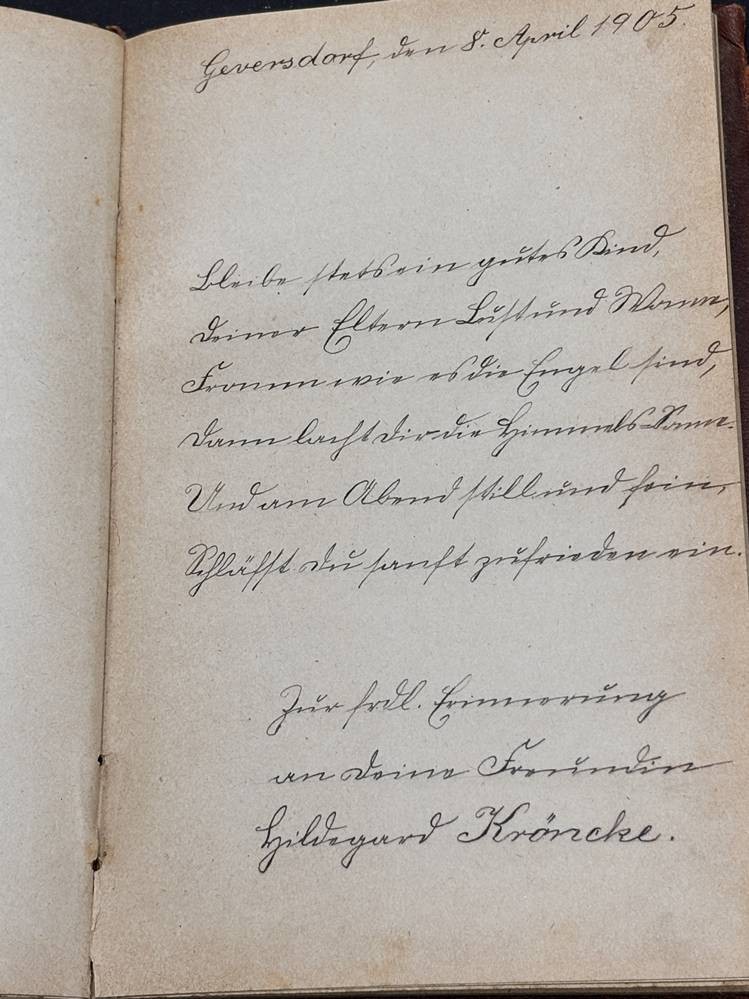 Geversdorf, den 8. April 1905.
Bleibe stets ein gutes Kind,
Deiner Eltern Lust und Wonne,
Fromm wie es die Engel sind,
Dann lacht Dir die Himmels-Sonne.
Und am Abend still und fein,
Schläfst Du sanft zufrieden ein.
Zur frdl. Erinnerung
an Deine Freundin
Hildegard Kröncke.